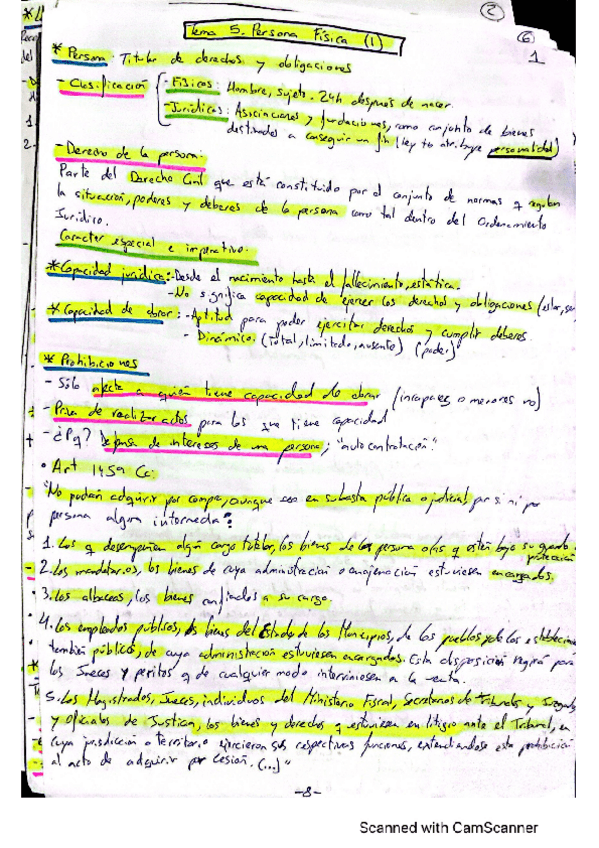 2
6
1
Tema 5. Persona Física (1)
* Persona: Titular de derechos y obligaciones
- Clasificación
- Físicas: Hombre, sujeto. 24h después de nacer.
- Jurídicas: Asociaciones y fundaciones, como conjunto de bienes
destinados a conseguir un fin (ley te atribuye personalidad)
- Derecho de la persona:
Parte del Derecho Civil que está constituido por el conjunto de normas q regulan
la situación, poderes y deberes de la persona como tal dentro del Ordenamiento
Jurídico.
Carácter especial e imperativo.
* Capacidad jurídica: - Desde el nacimiento hasta el fallecimiento, estática.
- No significa capacidad de ejercer los derechos y obligaciones
* Capacidad de obrar: - Aptitud para poder ejercitar derechos y cumplir deberes.
- Dinámico (total, limitado, ausente) (poder)
* Prohibiciones
- Sólo afecta a quién tiene capacidad de obrar (incapaces o menores no)
- Priva de realizar actos para los que tiene capacidad
- ¿Pq? Defensa de intereses de una persona; "autocontratación".
• Art 1459 Cc:
"No podrán adquirir por compra, aunque sea en subasta pública o judicial, por sí ni por
persona alguna intermedia:
1. Los q desempeñan algún cargo tutelar, los bienes de las persona o/as q estén bajo su guarda o
protección
2. Los mandatarios, los bienes de cuya administración o enajenación estuviesen encargados.
• 3. Los albaceas, los bienes confiados a su cargo.
4. Los empleados públicos, los bienes del Estado de los Municipios, de los pueblos y de los establecim
también públicos, de cuya administración estuviesen encargados. Esta disposición regirá para
los Jueces y peritos q de cualquier modo interviniesen a la venta.
5. Los Magistrados, Jueces, individuos del Ministerio Fiscal, Secretarios de Tribunales y Juzgados
y Oficiales de Justicia, los bienes y derechos q estuviesen en litigio ante el Tribunal, en
cuya jurisdicción o territorio ejercieran sus respectivas funciones, extendiéndose esta prohibición
al acto de adquirir por cesión. (...)"
-8-
Scanned with CamScanner